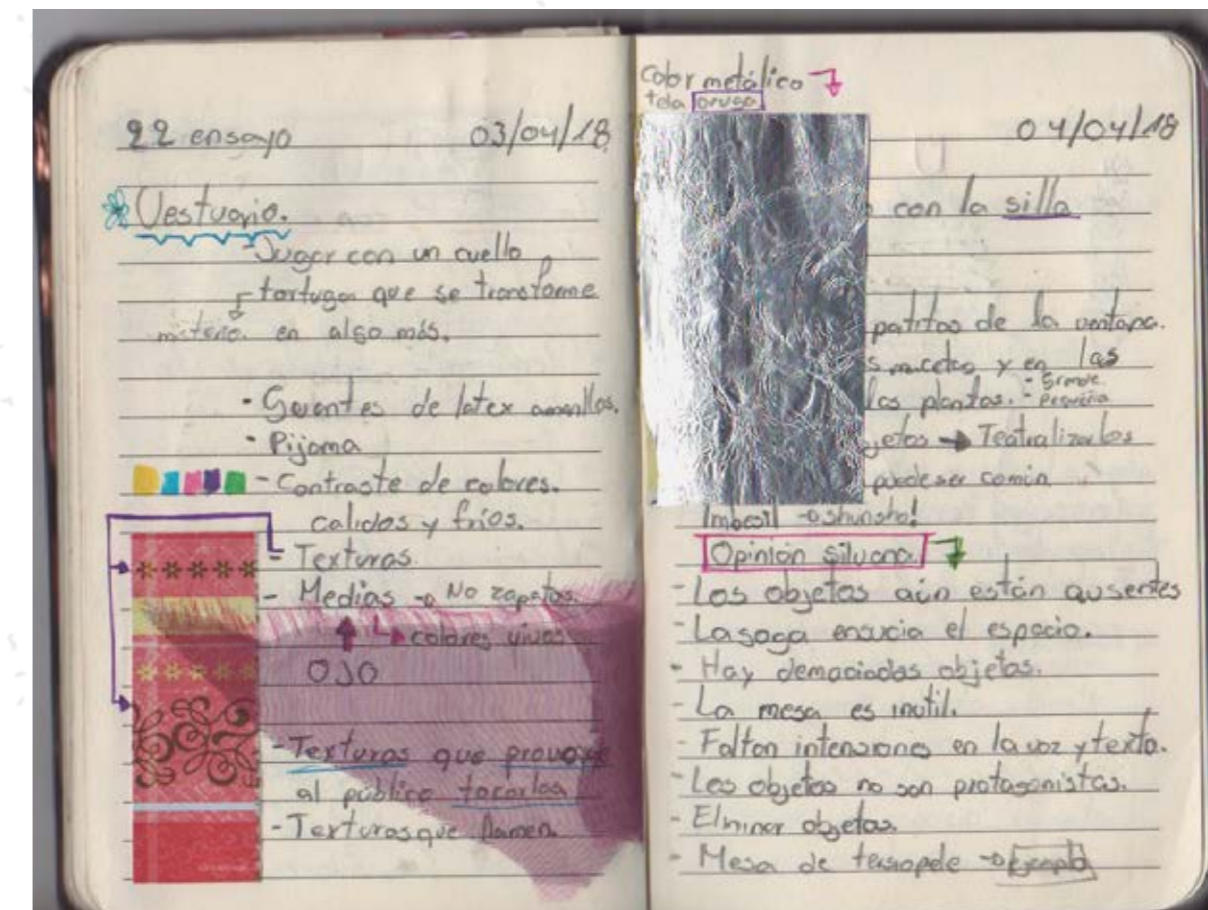 22 ensayo 03/04/18
Vestuario.
- Jugar con un cuello
tortuga que se transforme
misterio. en algo más.
- Guantes de latex amarillos.
- Pijama
- Contraste de colores.
calidos y fríos.
- Texturas
- Medias → No zapatos.
colores vivos
OJO
- Texturas que provoque
al público tocarlas
- Texturas que llamen.
Color metálico
tela oruga
04/04/18
con la silla
patitas de la ventana.
y en las
las plantas. - Grande
- Pequeña
→ Teatralizarlos
puede ser común
Imbecil → shunsho!
Opinión silvana.
- Los objetos aún están ausentes
- La soga ensucia el espacio.
- Hay demaciados objetos.
- La mesa es inutil.
- Faltan intensiones en la voz y texto.
- Los objetos no son protagonistas.
- Eliminar objetos.
- Mesa de → Ejemplo